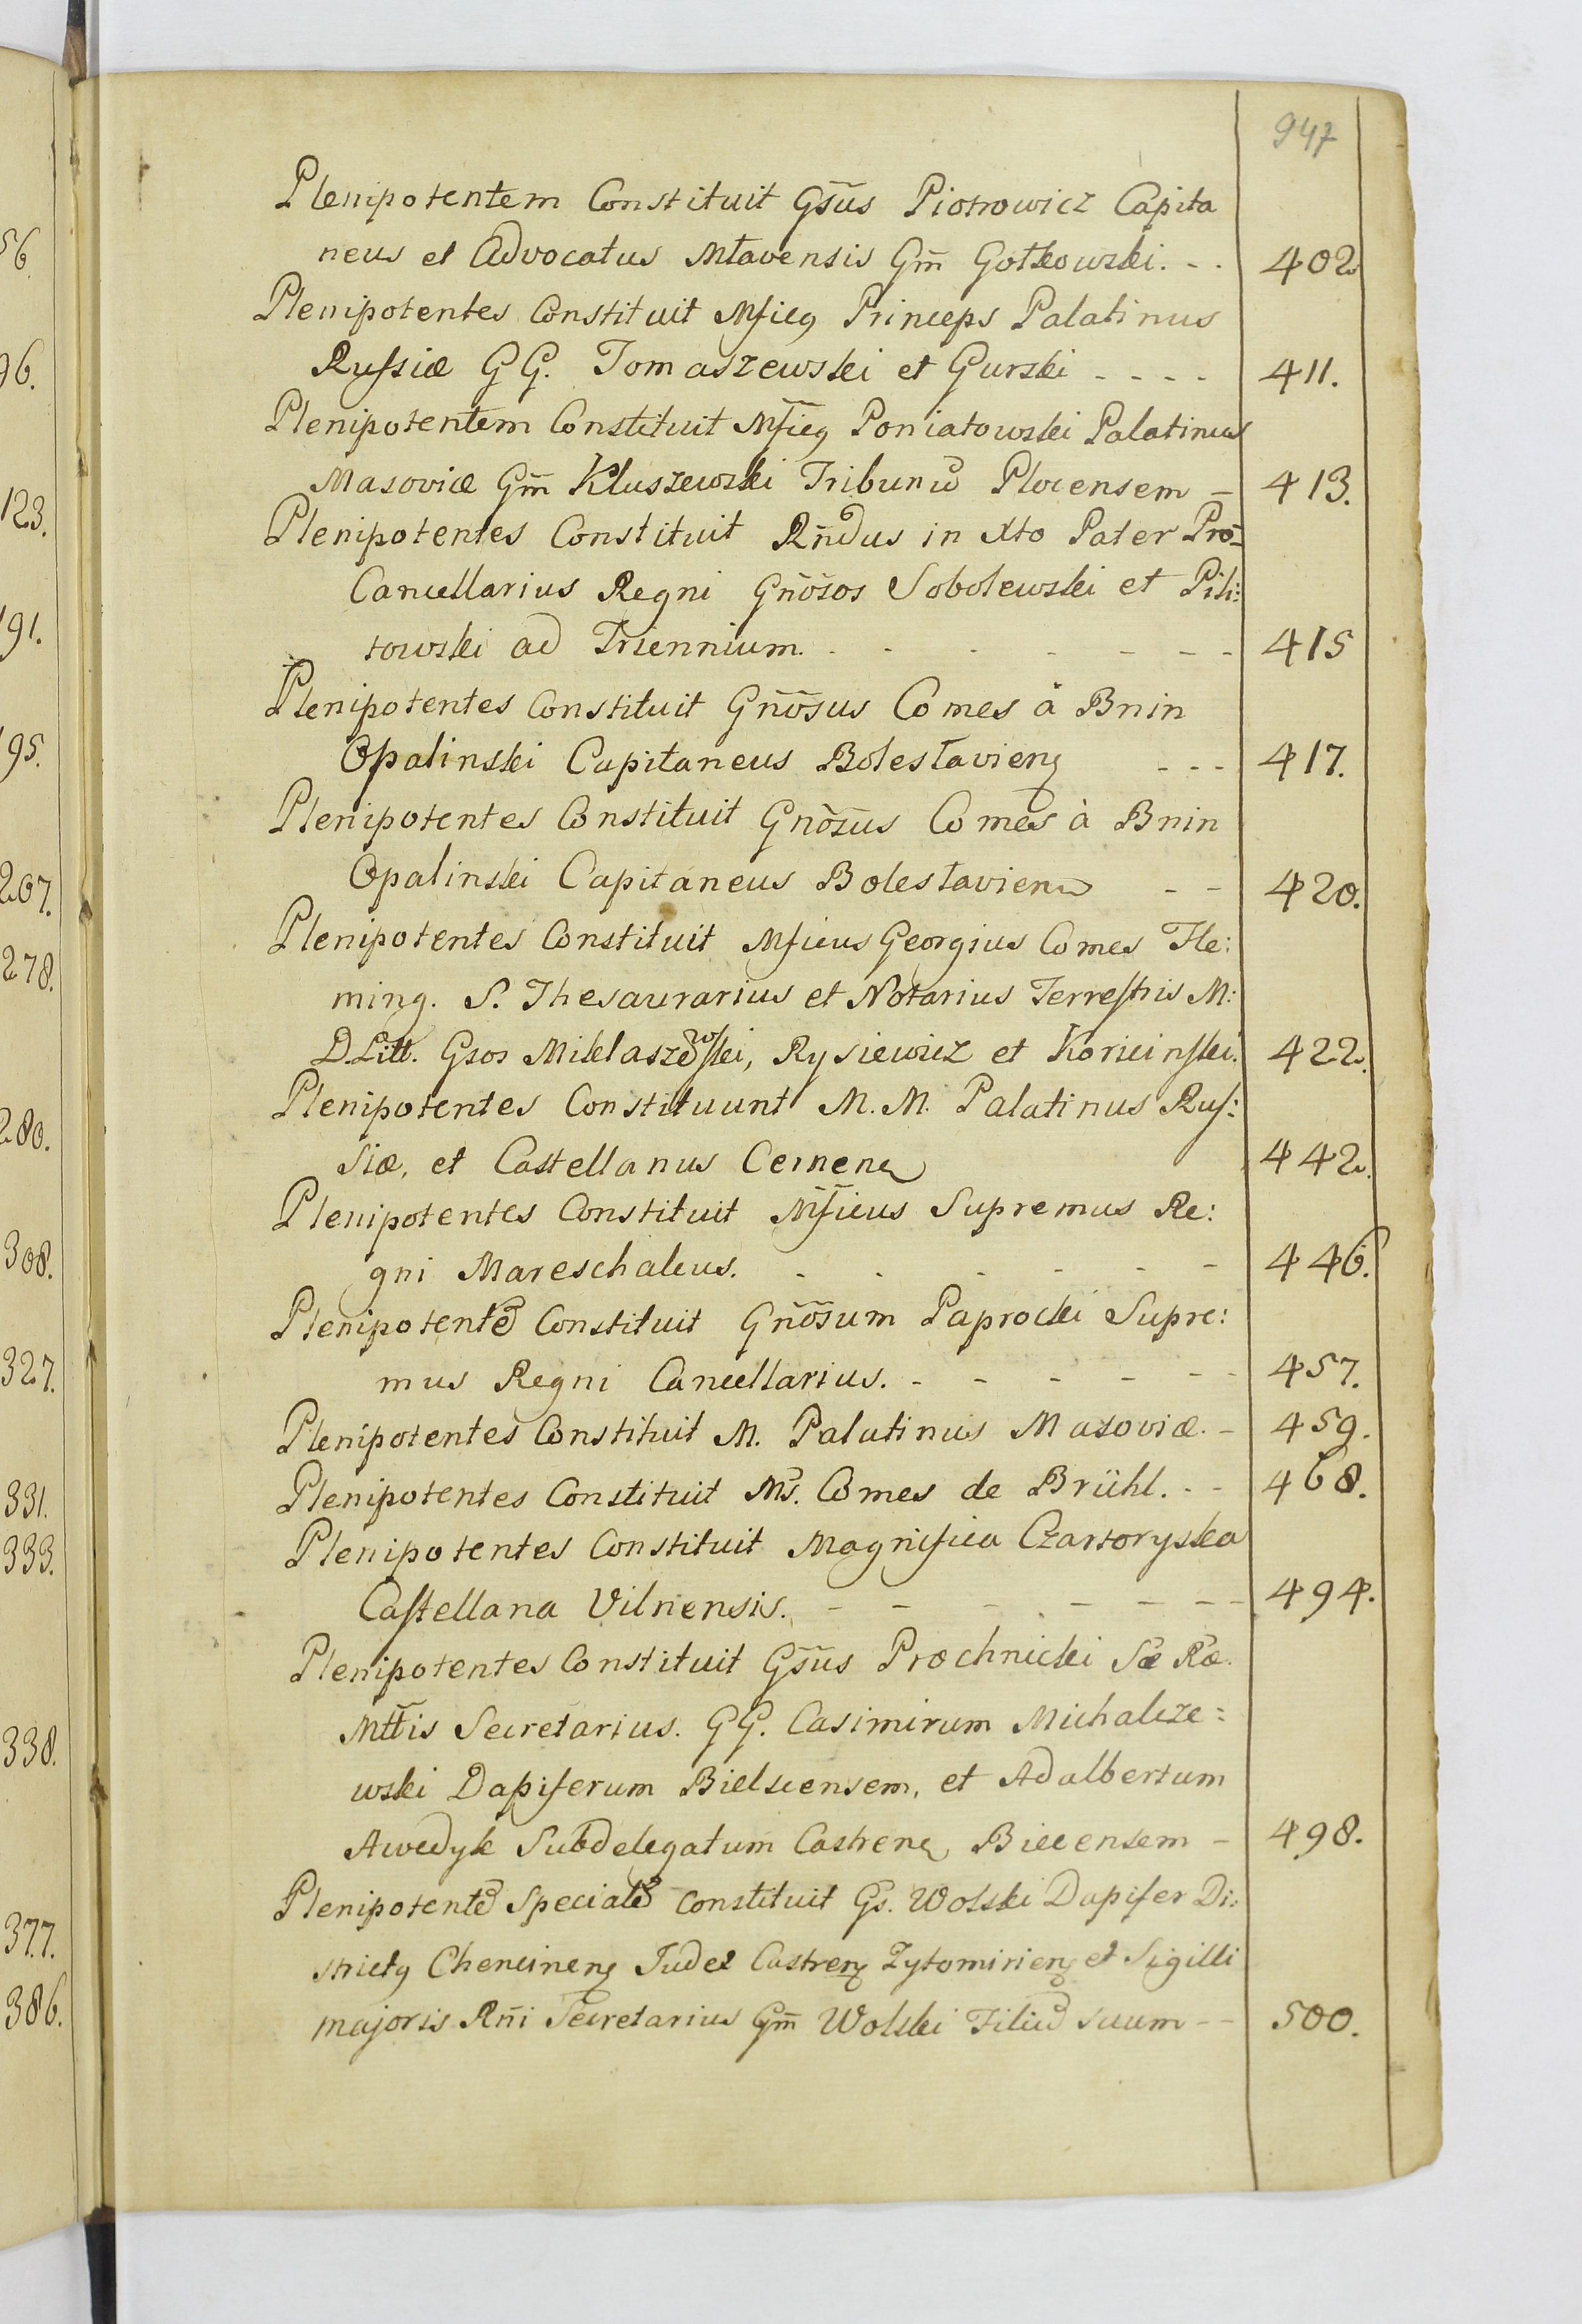 947
Plenipotentem Constituit Gs̃us Piotrowicz Capita
neus et Advocatus Mlavensis Gm̃ Gotkowski. - . 402
Plenipotentes Constituit Mficq Princeps Palatinus
Russiæ GG. Tomaszewski et Gurski - - - - 411.
Plenipotentem Constituit Mficq Poniatowski Palatinus
Masoviæ Gm̃ Kluszewski Tribunũ Plocensem - 413.
Plenipotentes Constituit Rñdus in Xto Pater Pro-
Cancellarius Regni Gñosos Sobolewski et Pili:
towski ad Triennium. - - - - - - - 415
Plenipotentes Constituit Gñosus Comes à Bnin
Opalinski Capitaneus Bolesłavienq - - - 417.
Plenipotentes Constituit Gñosus Comes à Bnin
Opalinski Capitaneus Bolesłavien - - 420.
Plenipotentes Constituit Mficus Georgius Comes Fle:
ming. S. Thesaurarius et Notarius Terrestris M:
D. Litt. Gsos Miklaszewski, Rysiewicz et Koricinski. 422.
Plenipotentes Constituunt M. M. Palatinus Rus:
siæ, et Castellanus Cernenq 442.
Plenipotentes Constituit Mficus Supremus Re:
gni Mareschalcus. - - - - - - 446.
Plenipotentẽ Constituit Gñosum Paprocki Supre:
mus Regni Cancellarius. - - - - - - 457.
Plenipotentes Constituit M. Palatinus Masoviæ. - 459.
Plenipotentes Constituit Ms. Comes de Brühl. - - 468.
Plenipotentes Constituit Magnifica Czartoryska
Castellana Vilnensis. - - - - - - - 494.
Plenipotentes Constituit Gs̃us Prochnicki Sæ Ræ.
Mttis Secretarius. GG. Casimirum Michalcze=
wski Dapiferum Bielscensem, et Adalbertum
Awedyk Subdelegatum Castrenq Biecensem - 498.
Plenipotentẽ Specialẽ Constituit Gs. Wolski Dapifer Di:
strictq Chencinenq Judex Castrenq Zytomirienq et Sigilli
majoris Rñi Secretarius Gm̃ Wolski Filiũ suum - - 500.
56.
96.
123.
191.
195.
207.
278.
280.
308.
327.
331.
333.
338.
377.
386.